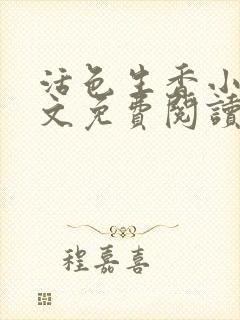 活色生香小
文免費閱讀
程嘉喜